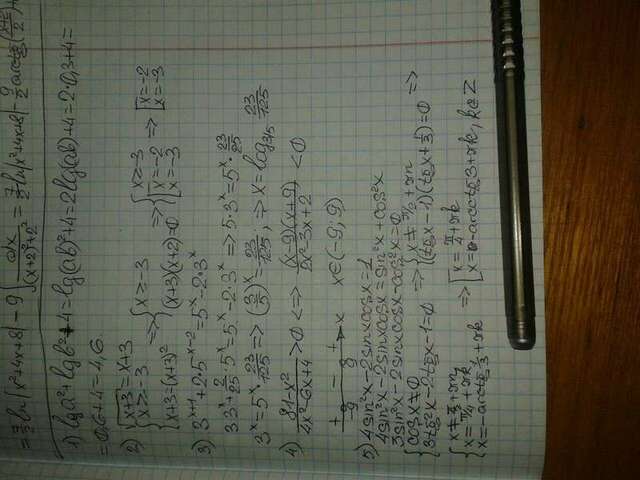 = 7/2 ln|x²+4x+8| - 9∫dx/((x+2)²+2²) = 7/2 ln|x²+4x+8| - 9/2 arctg((x+2)/2)+
1) lg a² + lg b² + 4 = lg(ab)² + 4 = 2lg(ab) + 4 = 2·0,3+4 =
= 0,6+4 = 4,6
2) { √(x+3) = x+3
{ x ≥ -3 => { x ≥ -3 => { x ≥ -3 => [ x = -2
{ x+3 = (x+3)² { (x+3)(x+2) = 0 { [ x = -2 [ x = -3
[ x = -3
3) 3^(x+1) + 2·5^(x-2) = 5^x - 2·3^x
3·3^x + 2/25·5^x = 5^x - 2·3^x => 5·3^x = 5^x·23/25
3^x = 5^x·23/125 => (3/5)^x = 23/125; => x = log_(3/5) 23/125
4) (81-x²)/(4x²-6x+4) > 0 <=> (x-9)(x+9)/(2x²-3x+2) < 0
+ - +
-9 9 x x∈(-9, 9)
5) 4sin²x - 2sinxcosx = 1
4sin²x - 2sinxcosx = sin²x + cos²x
3sin²x - 2sinxcosx - cos²x = 0
{ cosx ≠ 0 => { x ≠ π/2 + πn =>
{ 3tg²x - 2tgx - 1 = 0 { (tgx - 1)(tgx + 1/3) = 0
{ x ≠ π/2 + πn
{ x = π/4 + πk => [ x = π/4 + πk
x = -arctg 1/3 + πk [ x = -arcctg 3 + πk, k∈Z